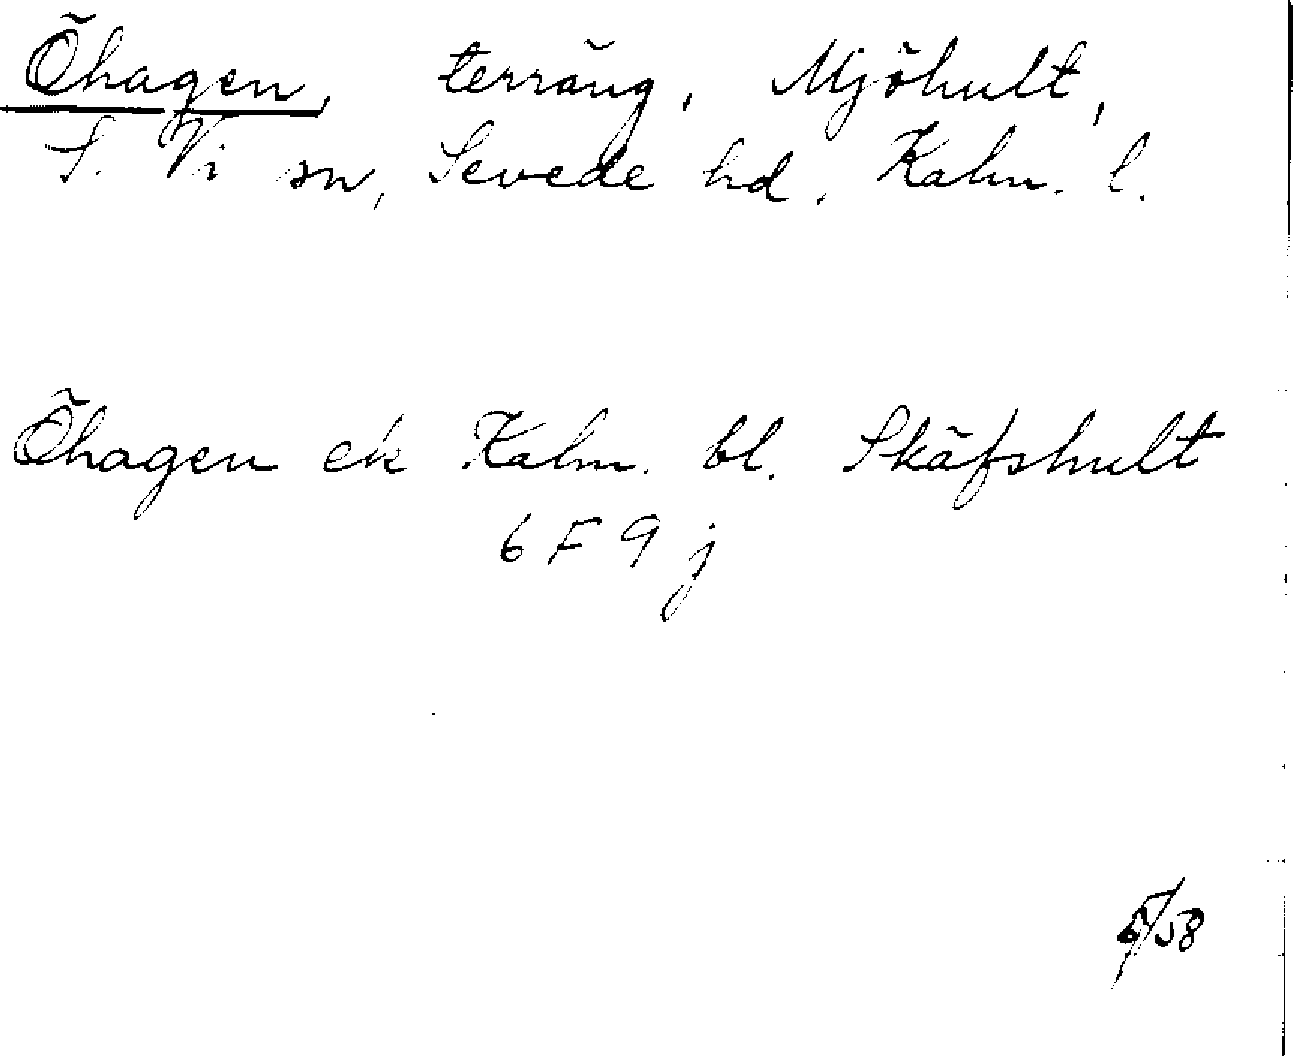 Öhagen, terräng, Mjöhult,
S. Vi sn, Sevede hd. Kalm. l.
Öhagen ek Kalm. bl. Skäfshult
6 F 9 j
/58